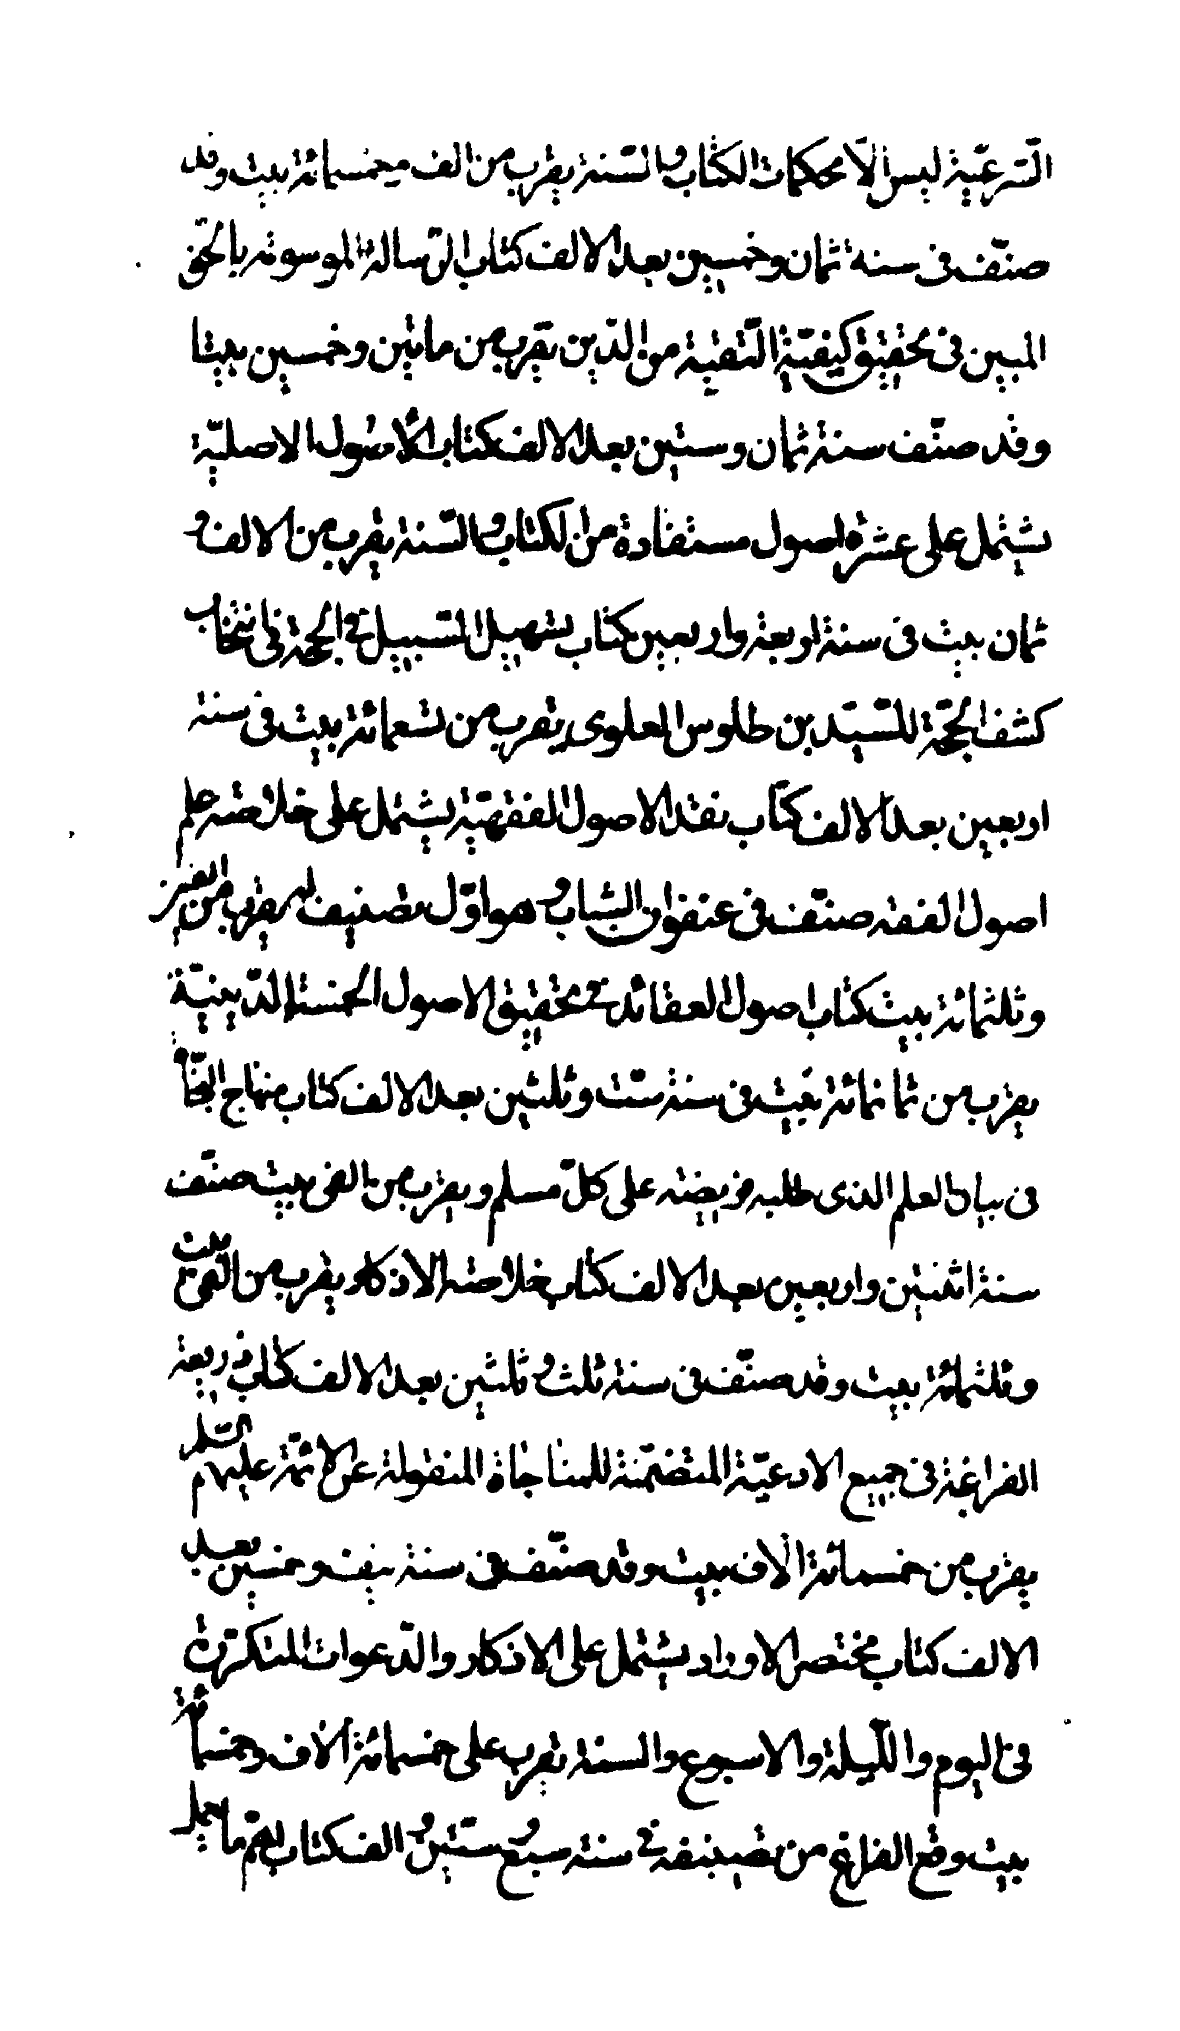 الشرعيّة ليس الّا محكمات الكتاب والسّنة يقرب من الف وخمسمائة بيت وقد
صنّف فى سنة ثمان وخمسين بعد الالف كتاب الرّسالة الموسومة بالحقّ
المبين فى تحقيق كيفيّة التّفقّه من الدّين يقرب من مايتين وخمسين بيتا
وقد صنّف سنة ثمان وستين بعد الالف كتاب الأصُول الاصليّة
يشتمل على عشرة اصول مستفادة من الكتاب والسّنة يقرب من الالف و
ثمان بيت فى سنة اربعة واربعين كتاب تسهيل السّبيل فى الحجّة فى انتخاب
كشف الحجّة للسّيّد بن طاوس العلوى يقرب من تسعمائة بيت فى سنة
اربعين بعد الالف كتاب نقد الاصول الفقهيّة يشتمل على خلاصة علم
اصول الفقه صنّف فى عنفوان الشباب وهو اوّل تصنيف لى يقرب من الفين
وثلثمائة بيت كتاب اصول العقائد فى تحقيق الاصول الخمسة الدّينيّة
يقرب من ثمانمائة بيت فى سنة ستّ وثلثين بعد الالف كتاب منهاج النّجاة
فى بيان العلم الذى طلبه فريضة على كلّ مسلم ويقرب من الفى بيت صنّف
سنة اثنتين واربعين بعد الالف كتاب خلاصة الاذكار يقرب من الفى بيت
وثلثمائة بيت وقد صنّف فى سنة ثلث وثلثين بعد الالف كتاب ذريعة
الضراعة فى جميع الادعيّة المتضمّنة للمناجاة المنقولة عن الائمّة عليهم السّلم
يقرب من خمسمائة الاف بيت وقد صنّف فى سنة نيف وخمسين بعد
الالف كتاب مختصر الاوراد يشتمل على الاذكار والدّعوات المتكرّرة
فى اليوم والليلة والاسبوع والسنة يقرب على خمسمائة الاف وخمسمائة
بيت وقع الفراغ من تصنيفه فى سنة سبع وستين والف كتاب اهمّ ما يعمل